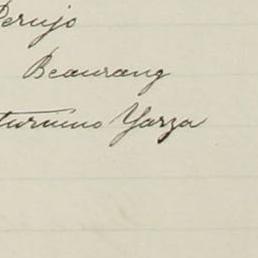 Perujo
Beaurang
turnino Yarza